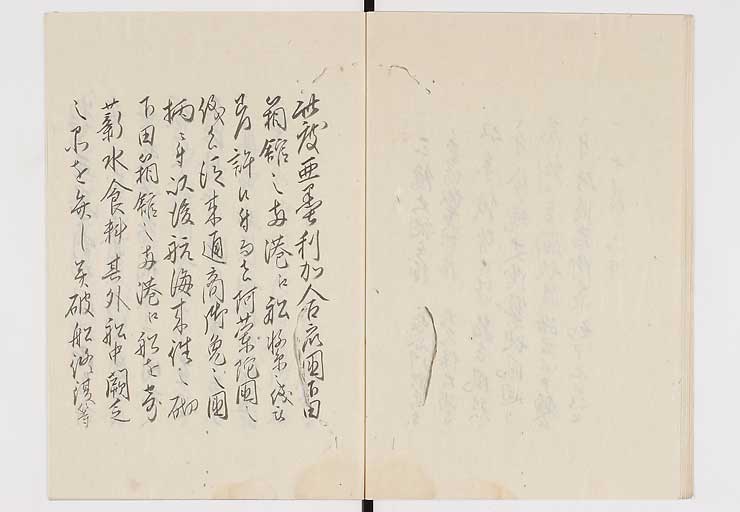 此度亜墨利加合衆国下田
箱館之両港江船繋之儀
許候付而者阿蘭陀国之
儀者従来通商御免之国
柄ニ付以後航海来往之砌
下田箱館之両港江船を寄
薪水食料其外船中闕乏
之品を弁し又破船修復等